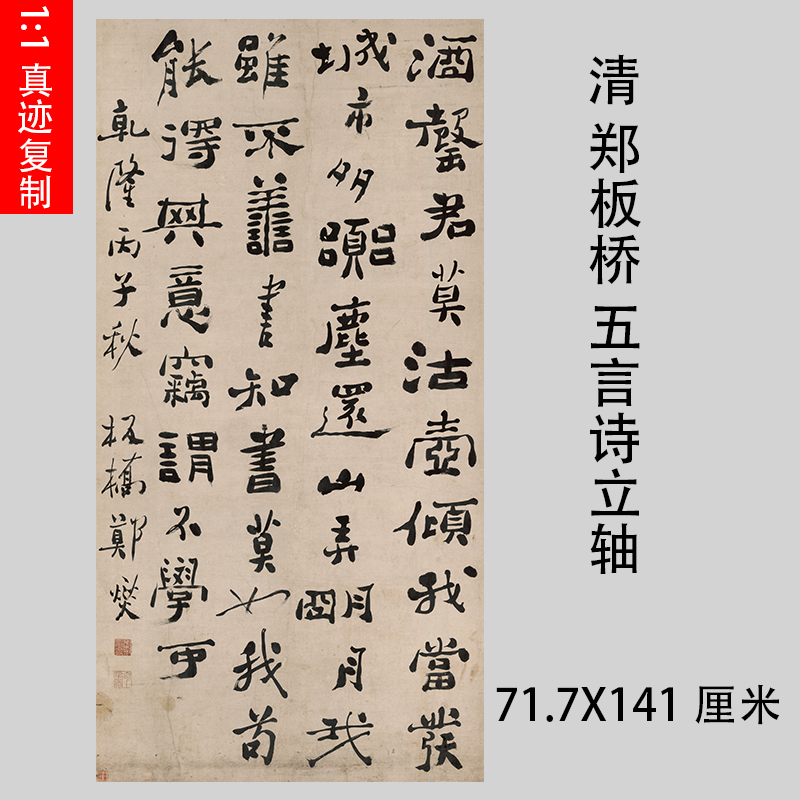 1:1 真迹复制
清 郑板桥 五言诗立轴
71.7X141 厘米
酒罄君莫沽壺傾我當發
城市多囂塵還山弄朙月我
雖不善書知書莫如我苟
能得其意竊謂不學可
乾隆丙子秋 板橋鄭燮